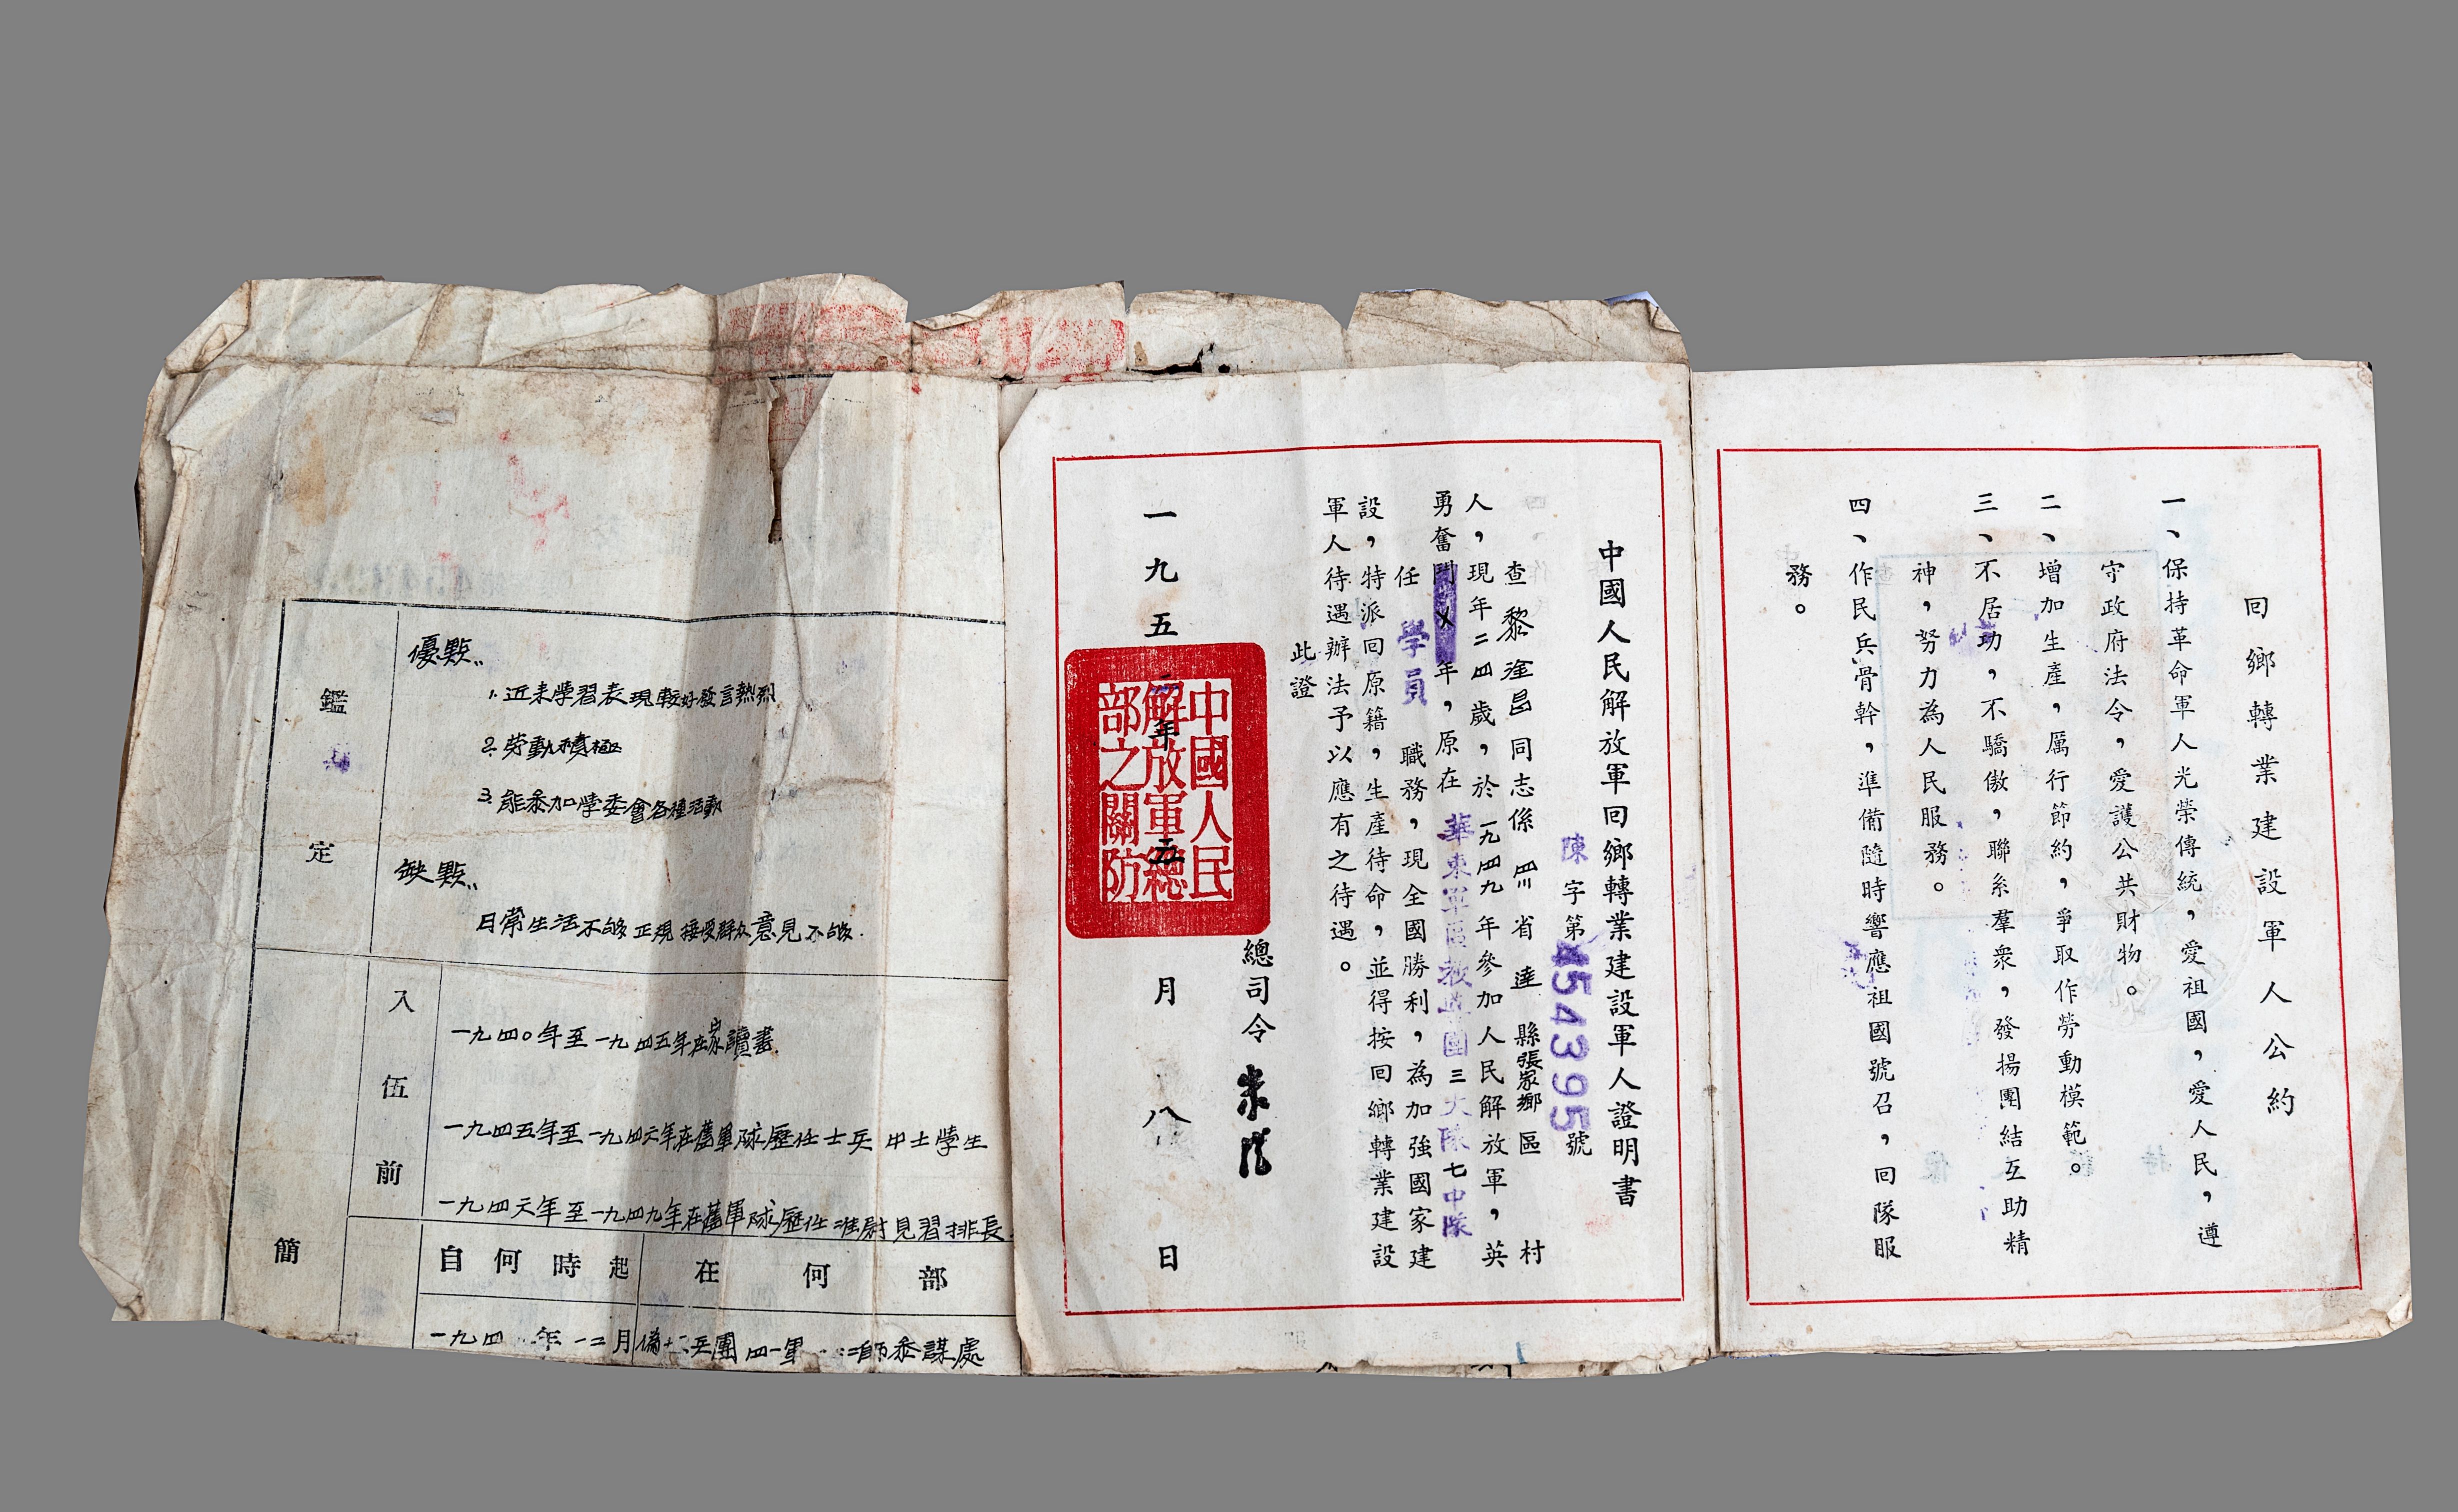 回鄉轉業建設軍人公約
一、保持革命軍人光榮傳統，愛祖國，愛人民，遵
守政府法令，愛護公共財物。
二、增加生產，厲行節約，爭取作勞動模範。
三、不居功，不驕傲，聯系羣衆，發揚團結互助精
神，努力為人民服務。
四、作民兵骨幹，準備隨時響應祖國號召，回隊服
務。
中國人民解放軍回鄉轉業建設軍人證明書
陳字第4543995號
查黎淦昌同志係四川省達縣張家鄉區村
人，現年二四歲，於一九四九年參加人民解放軍，英
勇奮鬥年，原在華東軍區教導團三大隊七中隊
任學員職務，現全國勝利，為加強國家建
設，特派回原籍，生產待命，並得按回鄉轉業建設
軍人待遇辦法予以應有之待遇。
此證
總司令朱德
一九五二年五月八日
中國人民
解放軍總
部之關防
鑑定
優點
1. 近來學習表現較好發言熱烈
2. 勞動積極
3. 能參加學委會各種活動
缺點
日常生活不够正規接受群众意見不够.
簡
入伍前
一九四〇年至一九四五年在家讀書
一九四五年至一九四六年在舊軍隊歷任士兵中士學生
一九四六年至一九四九年在舊軍隊歷任准尉見習排長
自何時起
在何部
一九四年一二月
兵團四一軍師參謀處